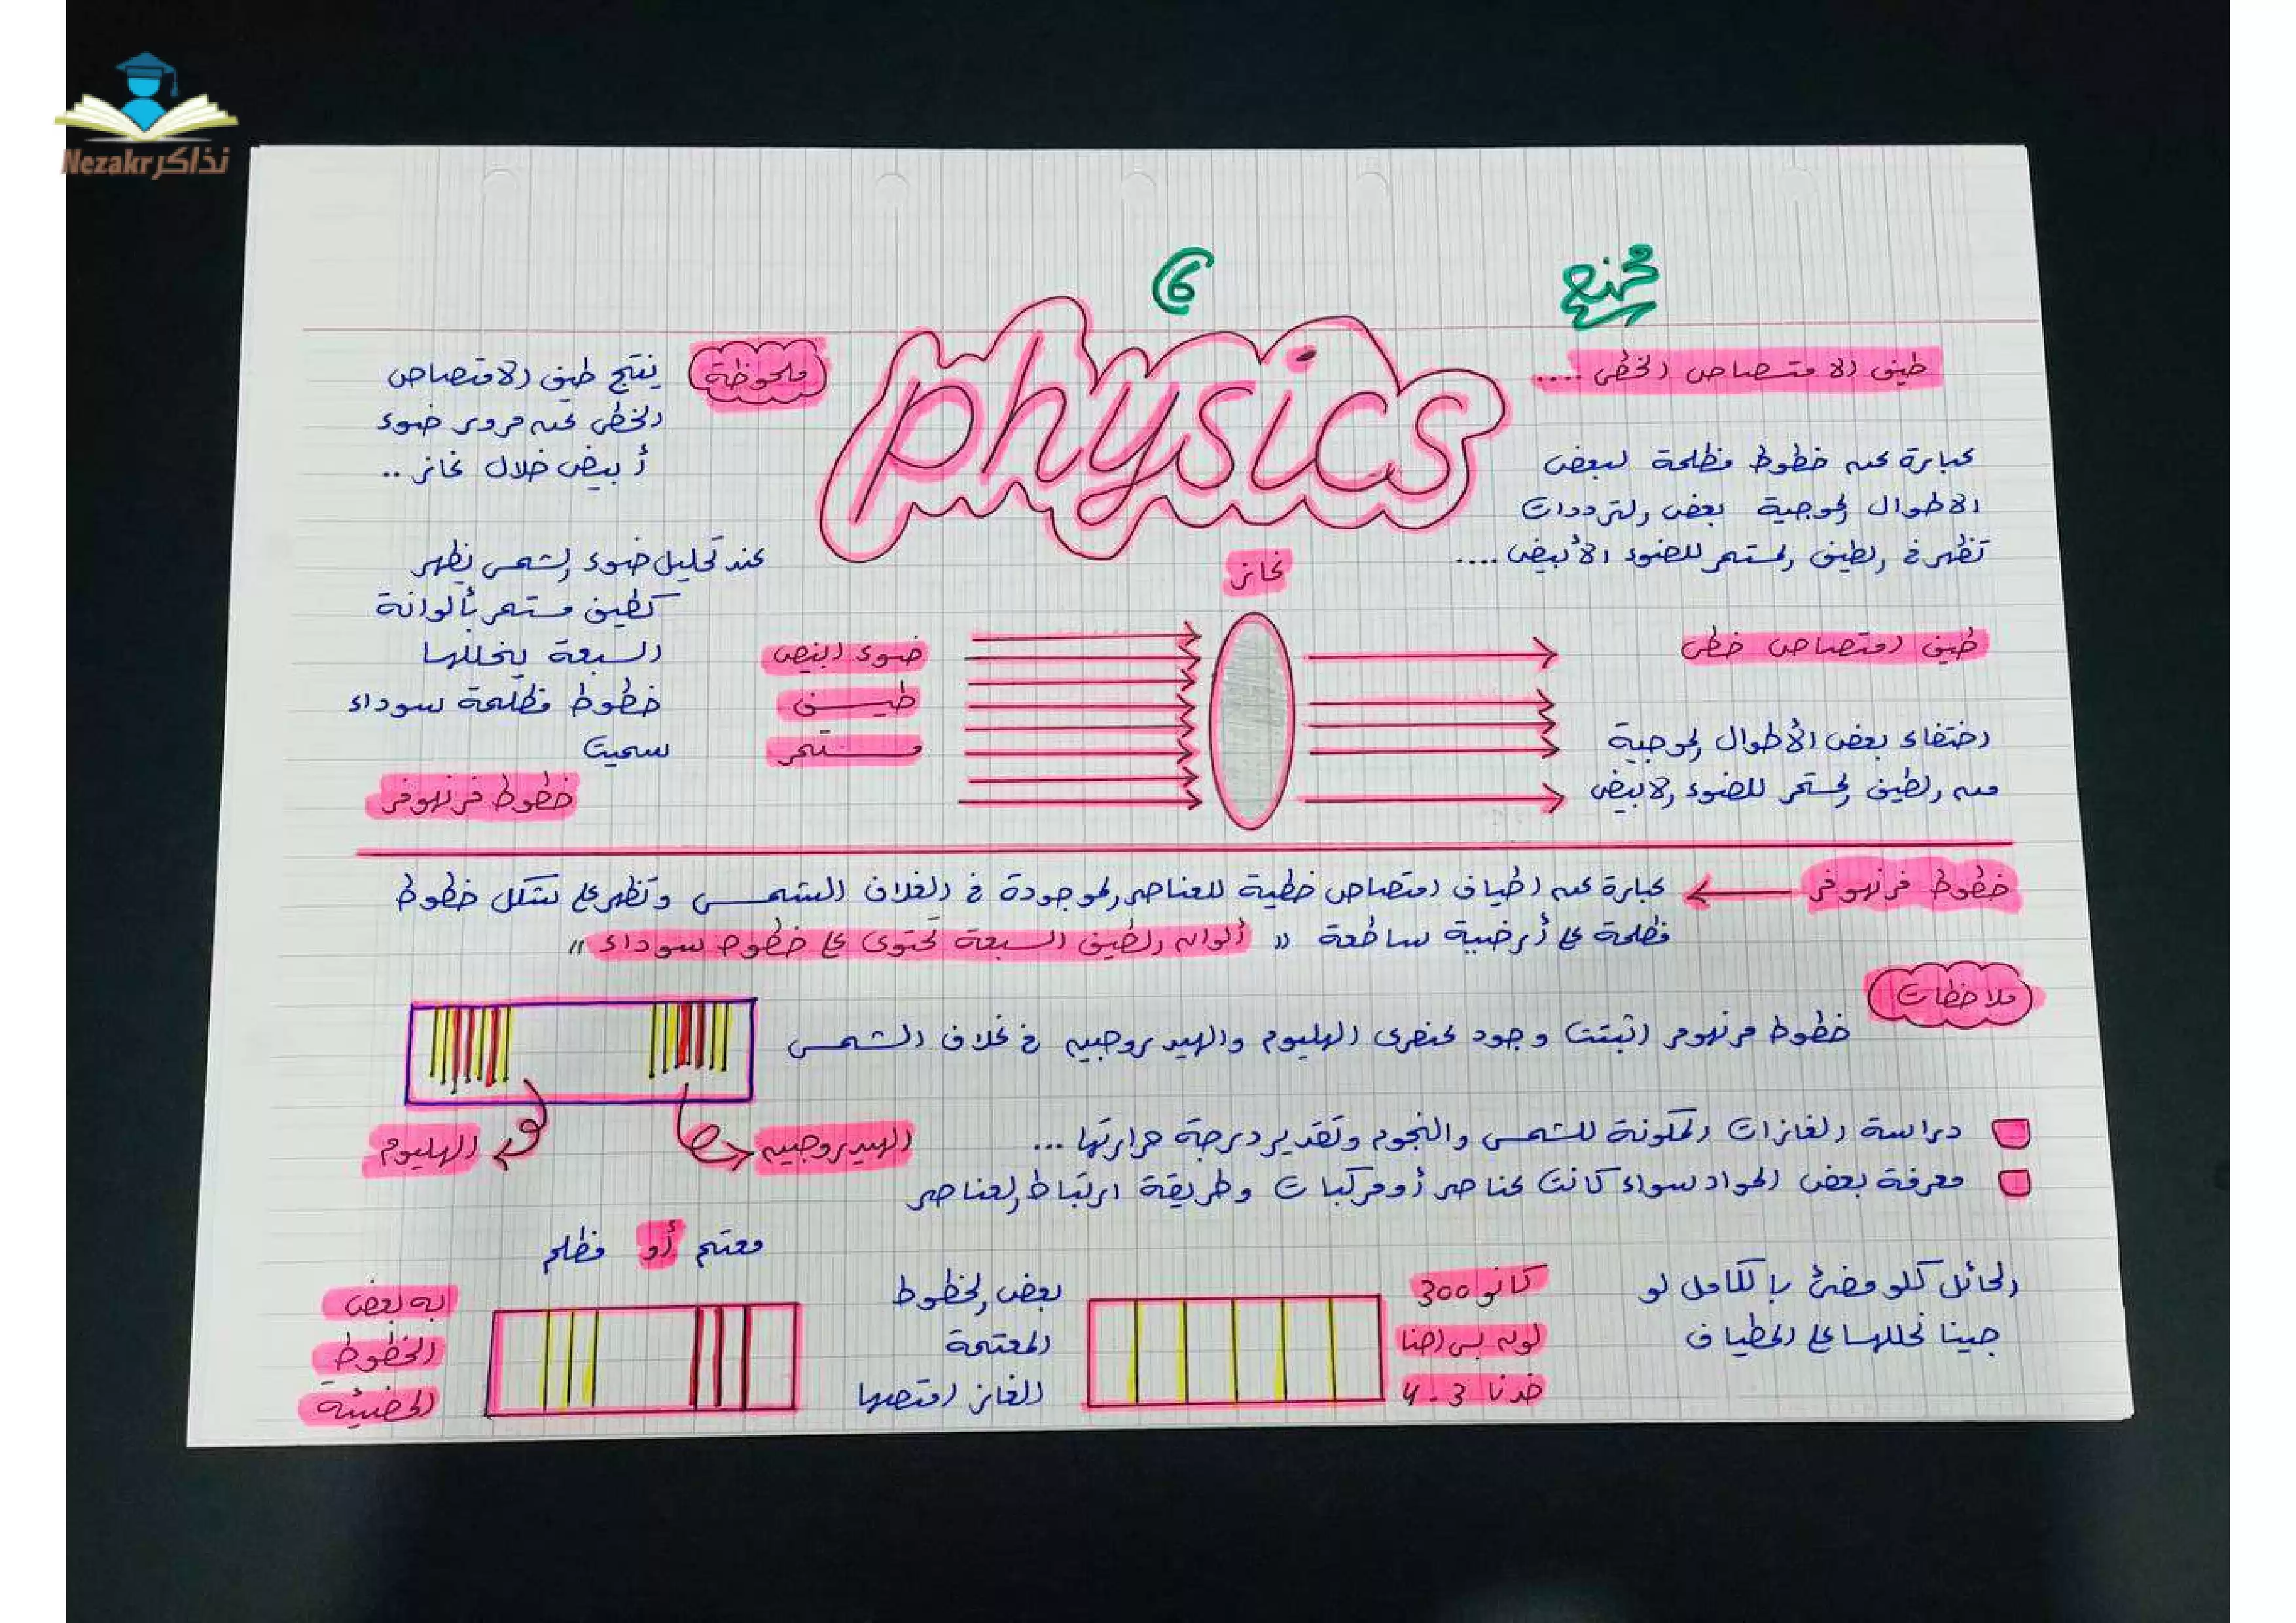 Nezakr نذاكر
6
physics
طيف الامتصاص الخطى ....
عبارة عن خطوط مظلمة لبعض
الاطوال الموجية بعض الترددات
تظهر فى الطيف المستمر للضوء الأبيض ....
ملحوظة
ينتج طيف الامتصاص
الخطى عند مرور ضوء
أبيض خلال غاز ..
عند تحليل ضوء الشمس يظهر
كطيف مستمر بألوانة
السبعة يتخللها
خطوط مظلمة سوداء
سميت
خطوط فرنهوفر
غاز
ضوء ابيض
طيف
مستمر
طيف امتصاص خطى
اختفاء بعض الأطوال الموجية
من الطيف المستمر للضوء الابيض
خطوط فرنهوفر
عبارة عن اطياف امتصاص خطية للعناصر الموجودة فى الغلاف الشمسى وتظهر على شكل خطوط
مظلمة على أرضية ساطعة " ألوان الطيف السبعة تحتوى على خطوط سوداء "
ملاحظات
خطوط فرنهوفر اثبتت وجود عنصرى الهليوم والهيدروجين فى غلاف الشمس
الهيدروجين
الهليوم
دراسة الغازات المكونة للشمس والنجوم وتقدير درجة حرارتها ...
معرفة بعض المواد سواء كانت عناصر أو مركبات وطريقة ارتباط العناصر
الحائل كلو مضئ بالكامل لو
جينا نحللها على اطياف
كانو 300
لون بس احنا
خدنا 3 - 4
بعض الخطوط
المعتمة
الغاز امتصها
معتم أو مظلم
به بعض
الخطوط
المضيئة